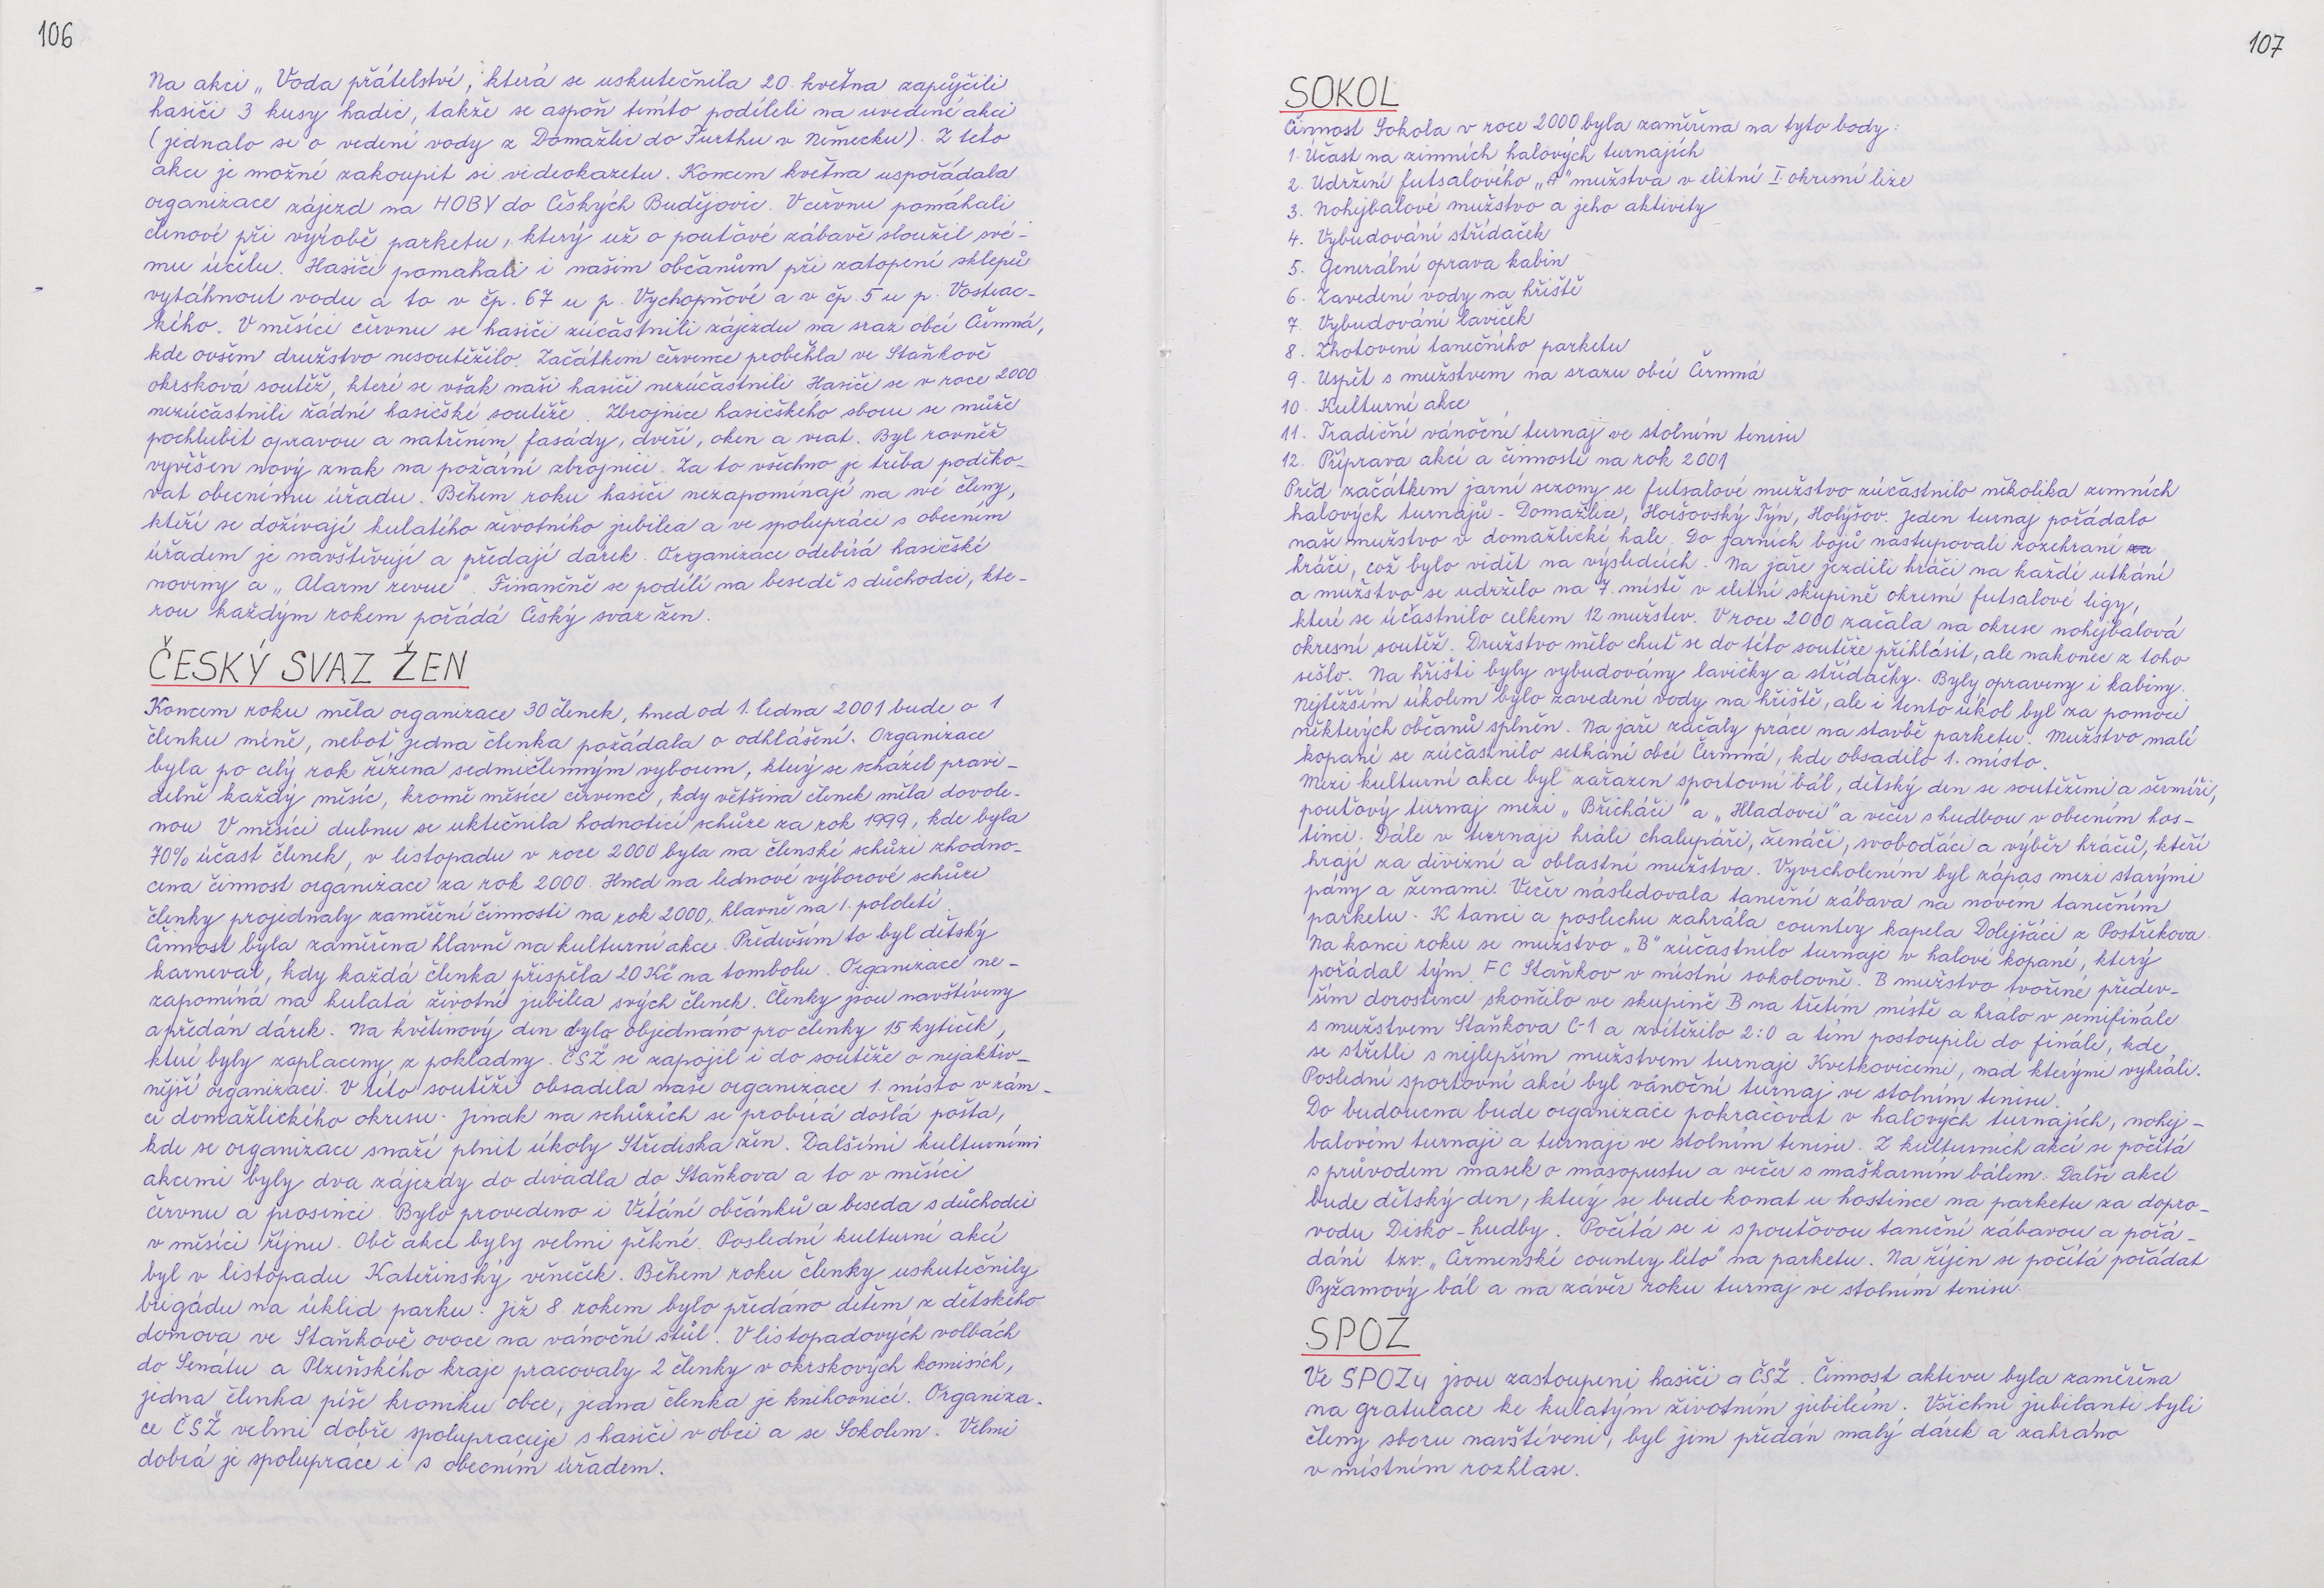 106
Na akci „Voda přátelství", která se uskutečnila 20. května zapůjčili
hasiči 3 kusy hadic, takže se aspoň tímto podíleli na uvedené akci
(jednalo se o vedení vody z Domažlic do Furthu v Německu). Z této
akce je možné zakoupit si videokazetu. Koncem května uspořádala
organizace zájezd na HOBY do Českých Budějovic. V červnu pomáhali
členové při výrobě parketu, který už o pouťové zábavě sloužil své-
mu účelu. Hasiči pomáhali i našim občanům při zatopení sklepů
vytáhnout vodu a to v čp. 67 u p. Vychopňové a v čp. 5 u p. Vostrac-
kého. V měsíci červnu se hasiči zúčastnili zájezdu na sraz obcí Čermná,
kde ovšem družstvo nesoutěžilo. Začátkem července proběhla ve Staňkově
okrsková soutěž, které se však naši hasiči nezúčastnili. Hasiči se v roce 2000
nezúčastnili žádné hasičské soutěže. Zbrojnice hasičského sboru se může
pochlubit opravou a natřením fasády, dveří, oken a vrat. Byl rovněž
vyvěšen nový znak na požární zbrojnici. Za to všechno je třeba poděko-
vat obecnímu úřadu. Během roku hasiči nezapomínají na své členy,
kteří se dožívají kulatého životního jubilea a ve spolupráci s obecním
úřadem je navštěvují a předají dárek. Organizace odebírá hasičské
noviny a „Alarm revue". Finančně se podílí na besedě s důchodci, kte-
rou každým rokem pořádá Český svaz žen.
ČESKÝ SVAZ ŽEN
Koncem roku měla organizace 30 členek, hned od 1. ledna 2001 bude o 1
členku méně, neboť jedna členka požádala o odhlášení. Organizace
byla po celý rok řízena sedmičlenným výborem, který se scházel pravi-
delně každý měsíc, kromě měsíce července, kdy většina členek měla dovole-
nou. V měsíci dubnu se uktečnila hodnotící schůze za rok 1999, kde byla
70% účast členek, v listopadu v roce 2000 byla na členské schůzi zhodno-
cena činnost organizace za rok 2000. Hned na lednové výborové schůzi
členky projednaly zaměření činnosti na rok 2000, hlavně na 1. pololetí.
Činnost byla zaměřena hlavně na kulturní akce. Především to byl dětský
karneval, kdy každá členka přispěla 20 Kč na tombolu. Organizace ne-
zapomíná na kulatá životní jubilea svých členek. Členky jsou navštíveny
a předán dárek. Na květinový den bylo objednáno pro členky 15 kytiček,
které byly zaplaceny z pokladny. ČSŽ se zapojil i do soutěže o nejaktiv-
nější organizaci. V této soutěži obsadila naše organizace 1. místo v rám-
ci domažlického okresu. Jinak na schůzích se probírá došlá pošta,
kde se organizace snaží plnit úkoly Střediska žen. Dalšími kulturními
akcemi byly dva zájezdy do divadla do Staňkova a to v měsíci
červnu a prosinci. Bylo provedeno i Vítání občánků a beseda s důchodci
v měsíci říjnu. Obě akce byly velmi pěkné. Poslední kulturní akcí
byl v listopadu Kateřinský věneček. Během roku členky uskutečnily
brigádu na úklid parku. Již 8. rokem bylo předáno dětem z dětského
domova ve Staňkově ovoce na vánoční stůl. V listopadových volbách
do Senátu a Plzeňského kraje pracovaly 2 členky v okrskových komisích,
jedna členka píše kroniku obce, jedna členka je knihovnicí. Organiza-
ce ČSŽ velmi dobře spolupracuje s hasiči v obci a se Sokolem. Velmi
dobrá je spolupráce i s obecním úřadem.
107
SOKOL
Činnost Sokola v roce 2000 byla zaměřena na tyto body:
1. Účast na zimních halových turnajích
2. Udržení futsalového „A" mužstva v elitní I. okresní lize
3. Nohejbalové mužstvo a jeho aktivity
4. Vybudování střídaček
5. Generální oprava kabin
6. Zavedení vody na hřiště
7. Vybudování laviček
8. Zhotovení tanečního parketu
9. Uspět s mužstvem na srazu obcí Čermná
10. Kulturní akce
11. Tradiční vánoční turnaj ve stolním tenisu
12. Příprava akcí a činností na rok 2001
Před začátkem jarní sezony se futsalové mužstvo zúčastnilo několika zimních
halových turnajů - Domažlice, Horšovský Týn, Holýšov. Jeden turnaj pořádalo
naše mužstvo v domažlické hale. Do jarních bojů nastupovali rozehraní za
hráči, což bylo vidět na výsledcích. Na jaře jezdili hráči na každé utkání
a mužstvo se udrželo na 7. místě v elitní skupině okresní futsalové ligy,
které se účastnilo celkem 12 mužstev. V roce 2000 začala na okrese nohejbalová
okresní soutěž. Družstvo mělo chuť se do této soutěže přihlásit, ale nakonec z toho
sešlo. Na hřišti byly vybudovány lavičky a střídačky. Byly opraveny i kabiny.
Nejtěžším úkolem bylo zavedení vody na hřiště, ale i tento úkol byl za pomoci
některých občanů splněn. Na jaře začaly práce na stavbě parketu. Mužstvo malé
kopané se zúčastnilo setkání obcí Čermná, kde obsadilo 1. místo.
Mezi kulturní akce byl zařazen sportovní bál, dětský den se soutěžemi a šermíři,
pouťový turnaj mezi „Břicháči" a „Hladovci" a večer s hudbou v obecním hos-
tinci. Dále v turnaji hráli chalupáři, ženáči, svobodáci a výběr hráčů, kteří
hrají za divizní a oblastní mužstva. Vyvrcholením byl zápas mezi starými
pány a ženami. Večer následovala taneční zábava na novém tanečním
parketu. K tanci a poslechu zahrála country kapela Dolejšáci z Postřekova.
Na konci roku se mužstvo „B" zúčastnilo turnaje v halové kopané, který
pořádal tým FC Staňkov v místní sokolovně. B mužstvo tvořené předev-
ším dorostenci skončilo ve skupině B na třetím místě a hrálo v semifinále
s mužstvem Staňkova C-1 a zvítězilo 2:0 a tím postoupili do finále, kde
se střetli s nejlepším mužstvem turnaje Kvítkovicemi, nad kterými vyhráli.
Poslední sportovní akcí byl vánoční turnaj ve stolním tenisu.
Do budoucna bude organizace pokračovat v halových turnajích, nohej-
balovém turnaji a turnaji ve stolním tenisu. Z kulturních akcí se počítá
s průvodem masek o masopustu a večer s maškarním bálem. Další akcí
bude dětský den, který se bude konat u hostince na parketu za dopro-
vodu Disko-hudby. Počítá se i s pouťovou taneční zábavou a pořá-
dání tzv. „Čermenské country léto" na parketu. Na říjen se počítá pořádat
Pyžamový bál a na závěr roku turnaj ve stolním tenisu.
SPOZ
Ve SPOZu jsou zastoupeni hasiči a ČSŽ. Činnost aktivu byla zaměřena
na gratulace ke kulatým životním jubileím. Všichni jubilanti byli
členy sboru navštíveni, byl jim předán malý dárek a zahráno
v místním rozhlase.